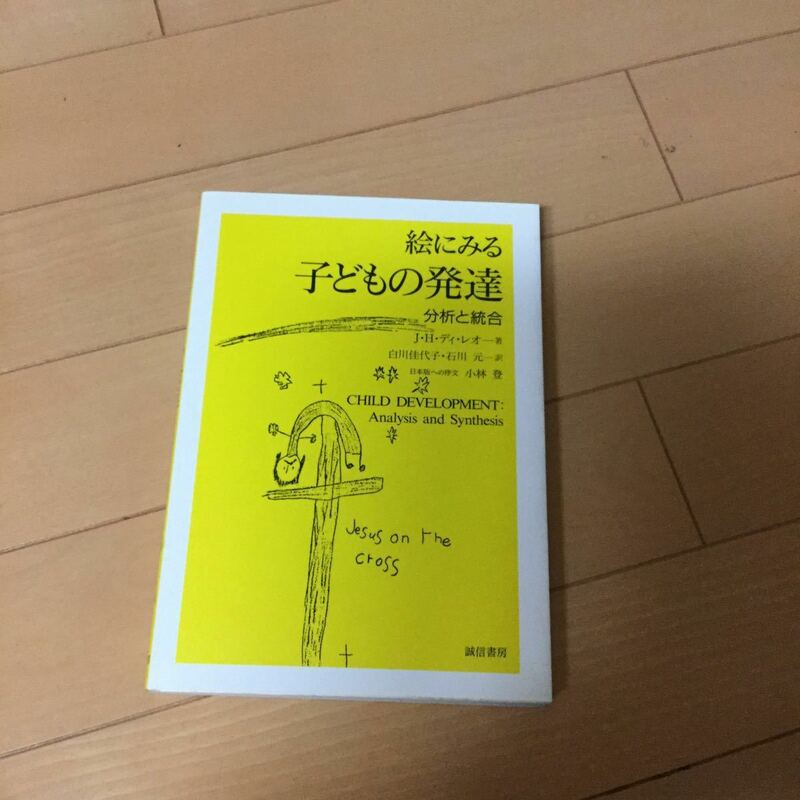 絵にみる
子どもの発達
分析と統合
J・H・ディ・レオー著
白川佳代子・石川 元一訳
日本版への序文 小林 登
CHILD DEVELOPMENT:
Analysis and Synthesis
Jesus on the
cross
誠信書房